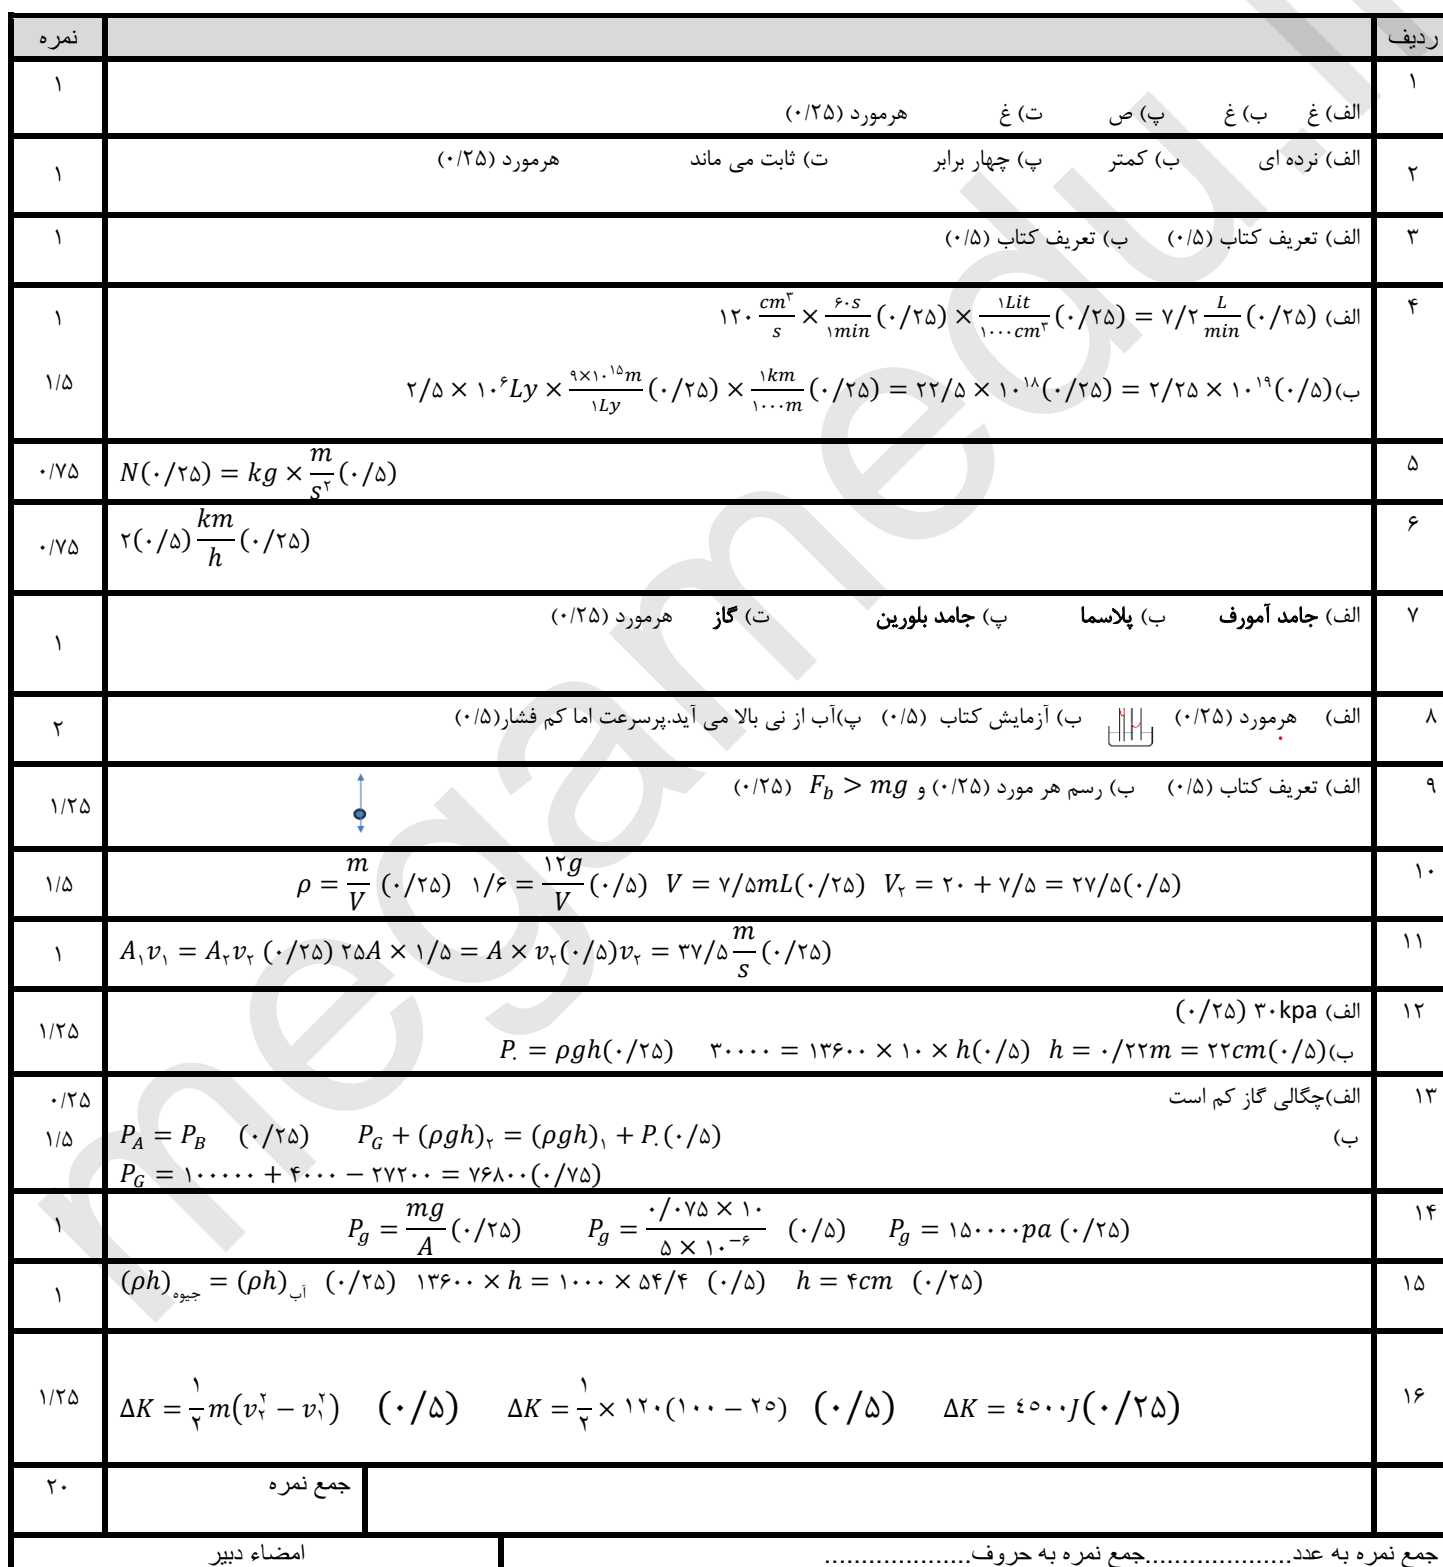 ردیف نمره
۱ ۱
الف) غ ب) غ پ) ص ت) غ هرمورد (۰/۲۵)
۲ الف) نرده ای ب) کمتر پ) چهار برابر ت) ثابت می ماند هرمورد (۰/۲۵) ۱
۳ الف) تعریف کتاب (۰/۵) ب) تعریف کتاب (۰/۵) ۱
۴ الف) ۱۲۰ cm^۳/s × ۶۰s/۱min (۰/۲۵) × ۱Lit/۱۰۰۰cm^۳ (۰/۲۵) = ۷/۲ L/min (۰/۲۵) ۱
ب) ۲/۵ × ۱۰^۶ Ly × ۹×۱۰^۱۵m/۱Ly (۰/۲۵) × ۱km/۱۰۰۰m (۰/۲۵) = ۲۲/۵ × ۱۰^۱۸ (۰/۲۵) = ۲/۲۵ × ۱۰^۱۹ (۰/۵) ۱/۵
۵ N(۰/۲۵) = kg × m/s^۲ (۰/۵) ۰/۷۵
۶ ۲(۰/۵) km/h (۰/۲۵) ۰/۷۵
۷ الف) جامد آمورف ب) پلاسما پ) جامد بلورین ت) گاز هرمورد (۰/۲۵) ۱
۸ الف) هرمورد (۰/۲۵) ب) آزمایش کتاب (۰/۵) پ)آب از نی بالا می آید.پرسرعت اما کم فشار(۰/۵) ۲
۹ الف) تعریف کتاب (۰/۵) ب) رسم هر مورد (۰/۲۵) و F_b > mg (۰/۲۵) ۱/۲۵
۱۰ ρ = m/V (۰/۲۵) ۱/۶ = ۱۲g/V (۰/۵) V = ۷/۵mL(۰/۲۵) V_۲ = ۲۰ + ۷/۵ = ۲۷/۵(۰/۵) ۱/۵
۱۱ A_۱v_۱ = A_۲v_۲ (۰/۲۵) ۲۵A × ۱/۵ = A × v_۲(۰/۵)v_۲ = ۳۷/۵ m/s (۰/۲۵) ۱
۱۲ الف) ۳۰kpa (۰/۲۵) ۱/۲۵
ب) P_۰ = ρgh(۰/۲۵) ۳۰۰۰۰ = ۱۳۶۰۰ × ۱۰ × h(۰/۵) h = ۰/۲۲m = ۲۲cm(۰/۵)
۱۳ الف)چگالی گاز کم است ۰/۲۵
ب) P_A = P_B (۰/۲۵) P_G + (ρgh)_۲ = (ρgh)_۱ + P_۰(۰/۵) ۱/۵
P_G = ۱۰۰۰۰۰ + ۴۰۰۰ − ۲۷۲۰۰ = ۷۶۸۰۰(۰/۷۵)
۱۴ P_g = mg/A (۰/۲۵) P_g = ۰/۰۷۵ × ۱۰/۵ × ۱۰^−۶ (۰/۵) P_g = ۱۵۰۰۰۰pa (۰/۲۵) ۱
۱۵ (ρh)جیوه = (ρh)آب (۰/۲۵) ۱۳۶۰۰ × h = ۱۰۰۰ × ۵۴/۴ (۰/۵) h = ۴cm (۰/۲۵) ۱
۱۶ ΔK = ۱/۲ m(v_۲^۲ − v_۱^۲) (۰/۵) ΔK = ۱/۲ × ۱۲۰(۱۰۰ − ۲٥) (۰/۵) ΔK = ٤٥۰۰J(۰/۲۵) ۱/۲۵
جمع نمره ۲۰
جمع نمره به عدد....................جمع نمره به حروف.................... امضاء دبیر
megamedu.i